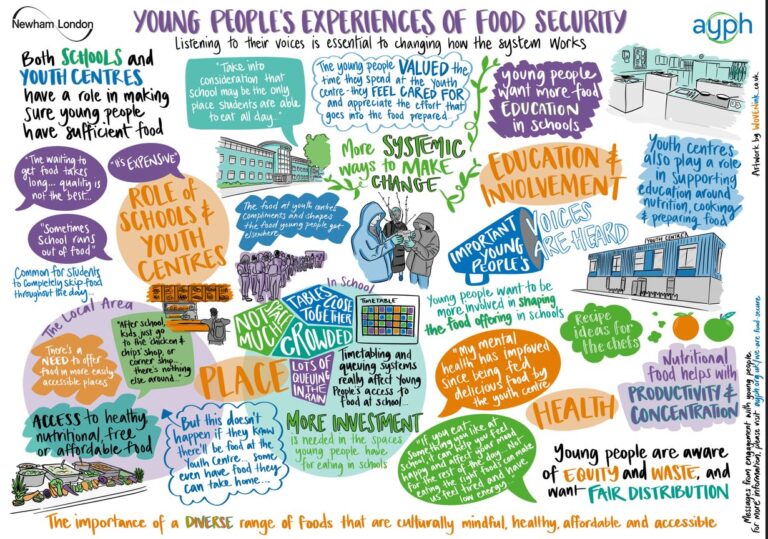 Newham London
YOUNG PEOPLE'S EXPERIENCES OF FOOD SECURITY
Listening to their voices is essential to changing how the system works
ayph
Both SCHOOLS and
YOUTH CENTRES
have a role in making
sure young people
have sufficient food
"Take into
consideration that
school may be the only
place students are able
to eat all day..."
The young people VALUED the
time they spend at the youth
centre - they FEEL CARED FOR
and appreciate the effort that
goes into the food prepared
young people
want more food
EDUCATION
in schools
Artwork by WovenInk.co.uk
"The waiting to
get food takes
long... quality is
not the best..."
"It's EXPENSIVE"
"Sometimes
School runs
out of food"
Common for students
to completely skip food
throughout the day...
ROLE of
SCHOOLS &
YOUTH
CENTRES
More SYSTEMIC
ways to MAKE
CHANGE
The food at youth centres
compliments and shapes
the food young people get
elsewhere
EDUCATION &
INVOLVEMENT
Youth centres
also play a role
in supporting
education around
nutrition, cooking
& preparing food
IMPORTANT
YOUNG
PEOPLE'S
VOICES
ARE HEARD
YOUTH CENTRE
Young people want to be
more involved in shaping
the food offering in schools
Recipe
ideas for
the chefs
The Local Area
There's a
NEED to offer
food in more easily
accessible places"
"After school,
kids just go
to the chicken &
chips' shop, or
corner shop...
there's nothing
else around..."
PLACE
In School
NOT THAT
MUCH
TABLES CLOSE
TOGETHER
CROWDED
LOTS OF
QUEUING
IN THE
RAIN
TIMETABLE
Timetabling and
queuing systems
really affect Young
People's access to
food at school...
MORE INVESTMENT
is needed in the spaces
young people have
for eating in schools
ACCESS to healthy,
nutritional, free
or affordable food
But this doesn't
happen if they know
there'll be food at the
Youth Centre... some
even have food they
can take home...
"My mental
health has improved
since being fed
delicious food by
the youth centre"
HEALTH
"If you eat
something you like at
School, it can make you feel
happy and affect your mood
for the rest of the day - not
eating the right foods can make
us feel tired and have
low energy..."
Nutritional
food helps with
PRODUCTIVITY &
CONCENTRATION
Young people are aware
of EQUITY and WASTE, and
want FAIR DISTRIBUTION
Messages from engagement with young people
for more information, please visit ayph.org.uk/
The importance of a DIVERSE range of foods that are culturally mindful, healthy, affordable and accessible